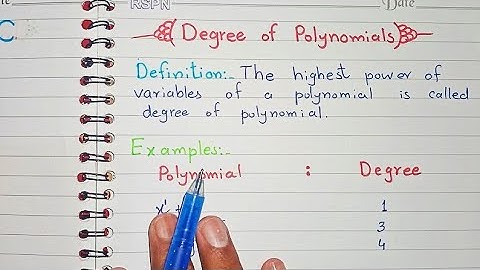 RSPN Date
C
Degree of Polynomials
Definition:- The highest power of
variables of a polynomial is called
degree of polynomial.
Examples:-
Polynomial : Degree
x¹ + 1
3
4